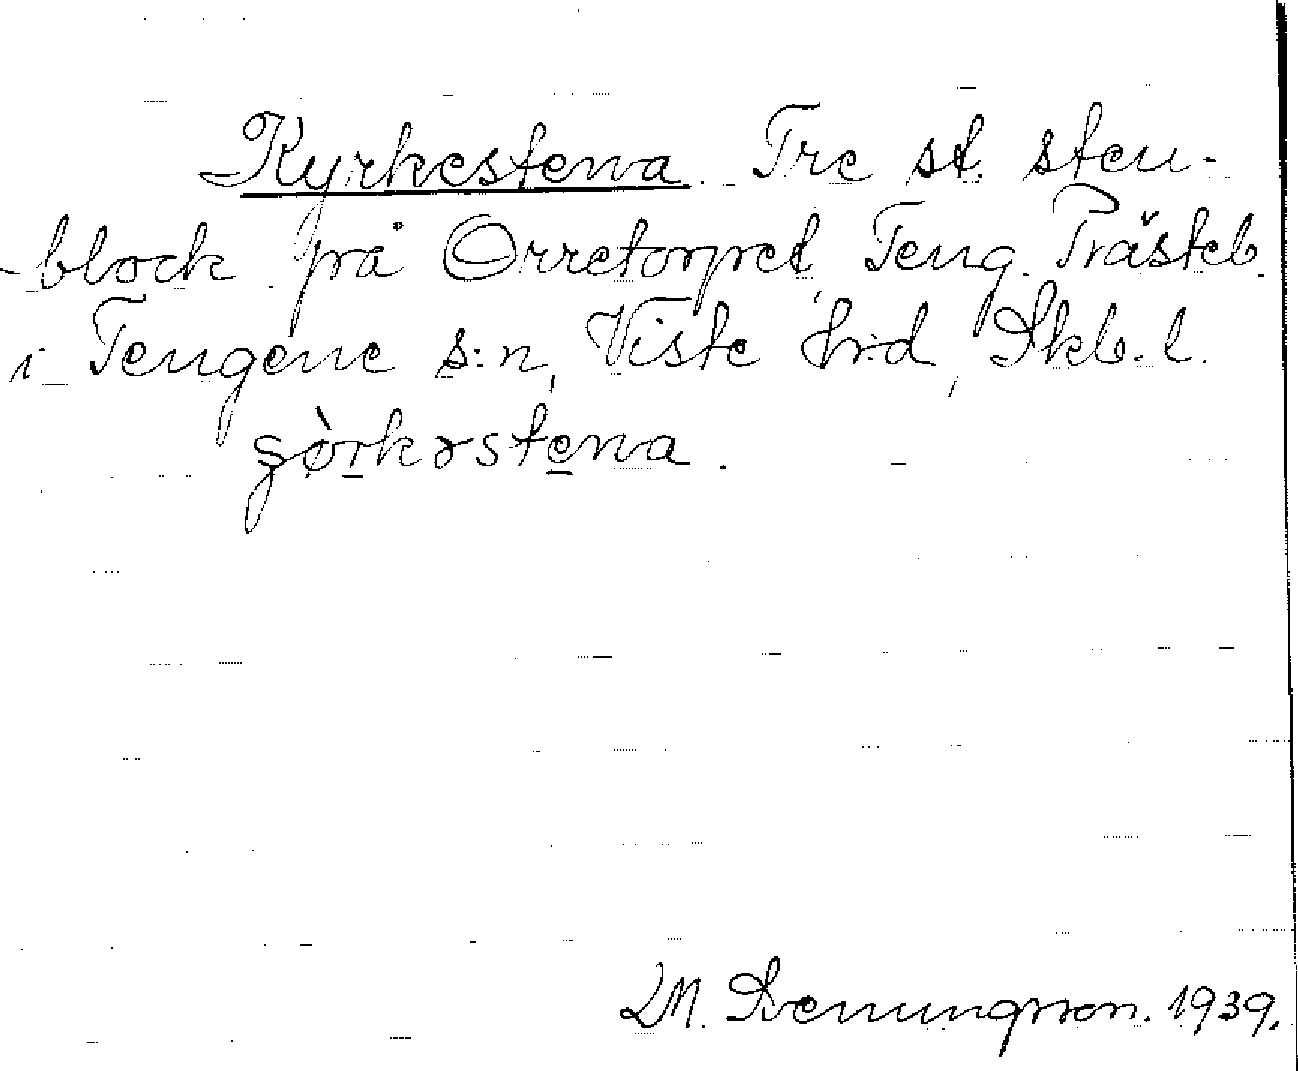 Kyrkestena. Tre st. sten-
-block på Orretorpet, Teng. Prästeb.
i Tengene s:n, Viste hrd, Skb. l.
şòrkəstena.
M. Svenungsson. 1939.